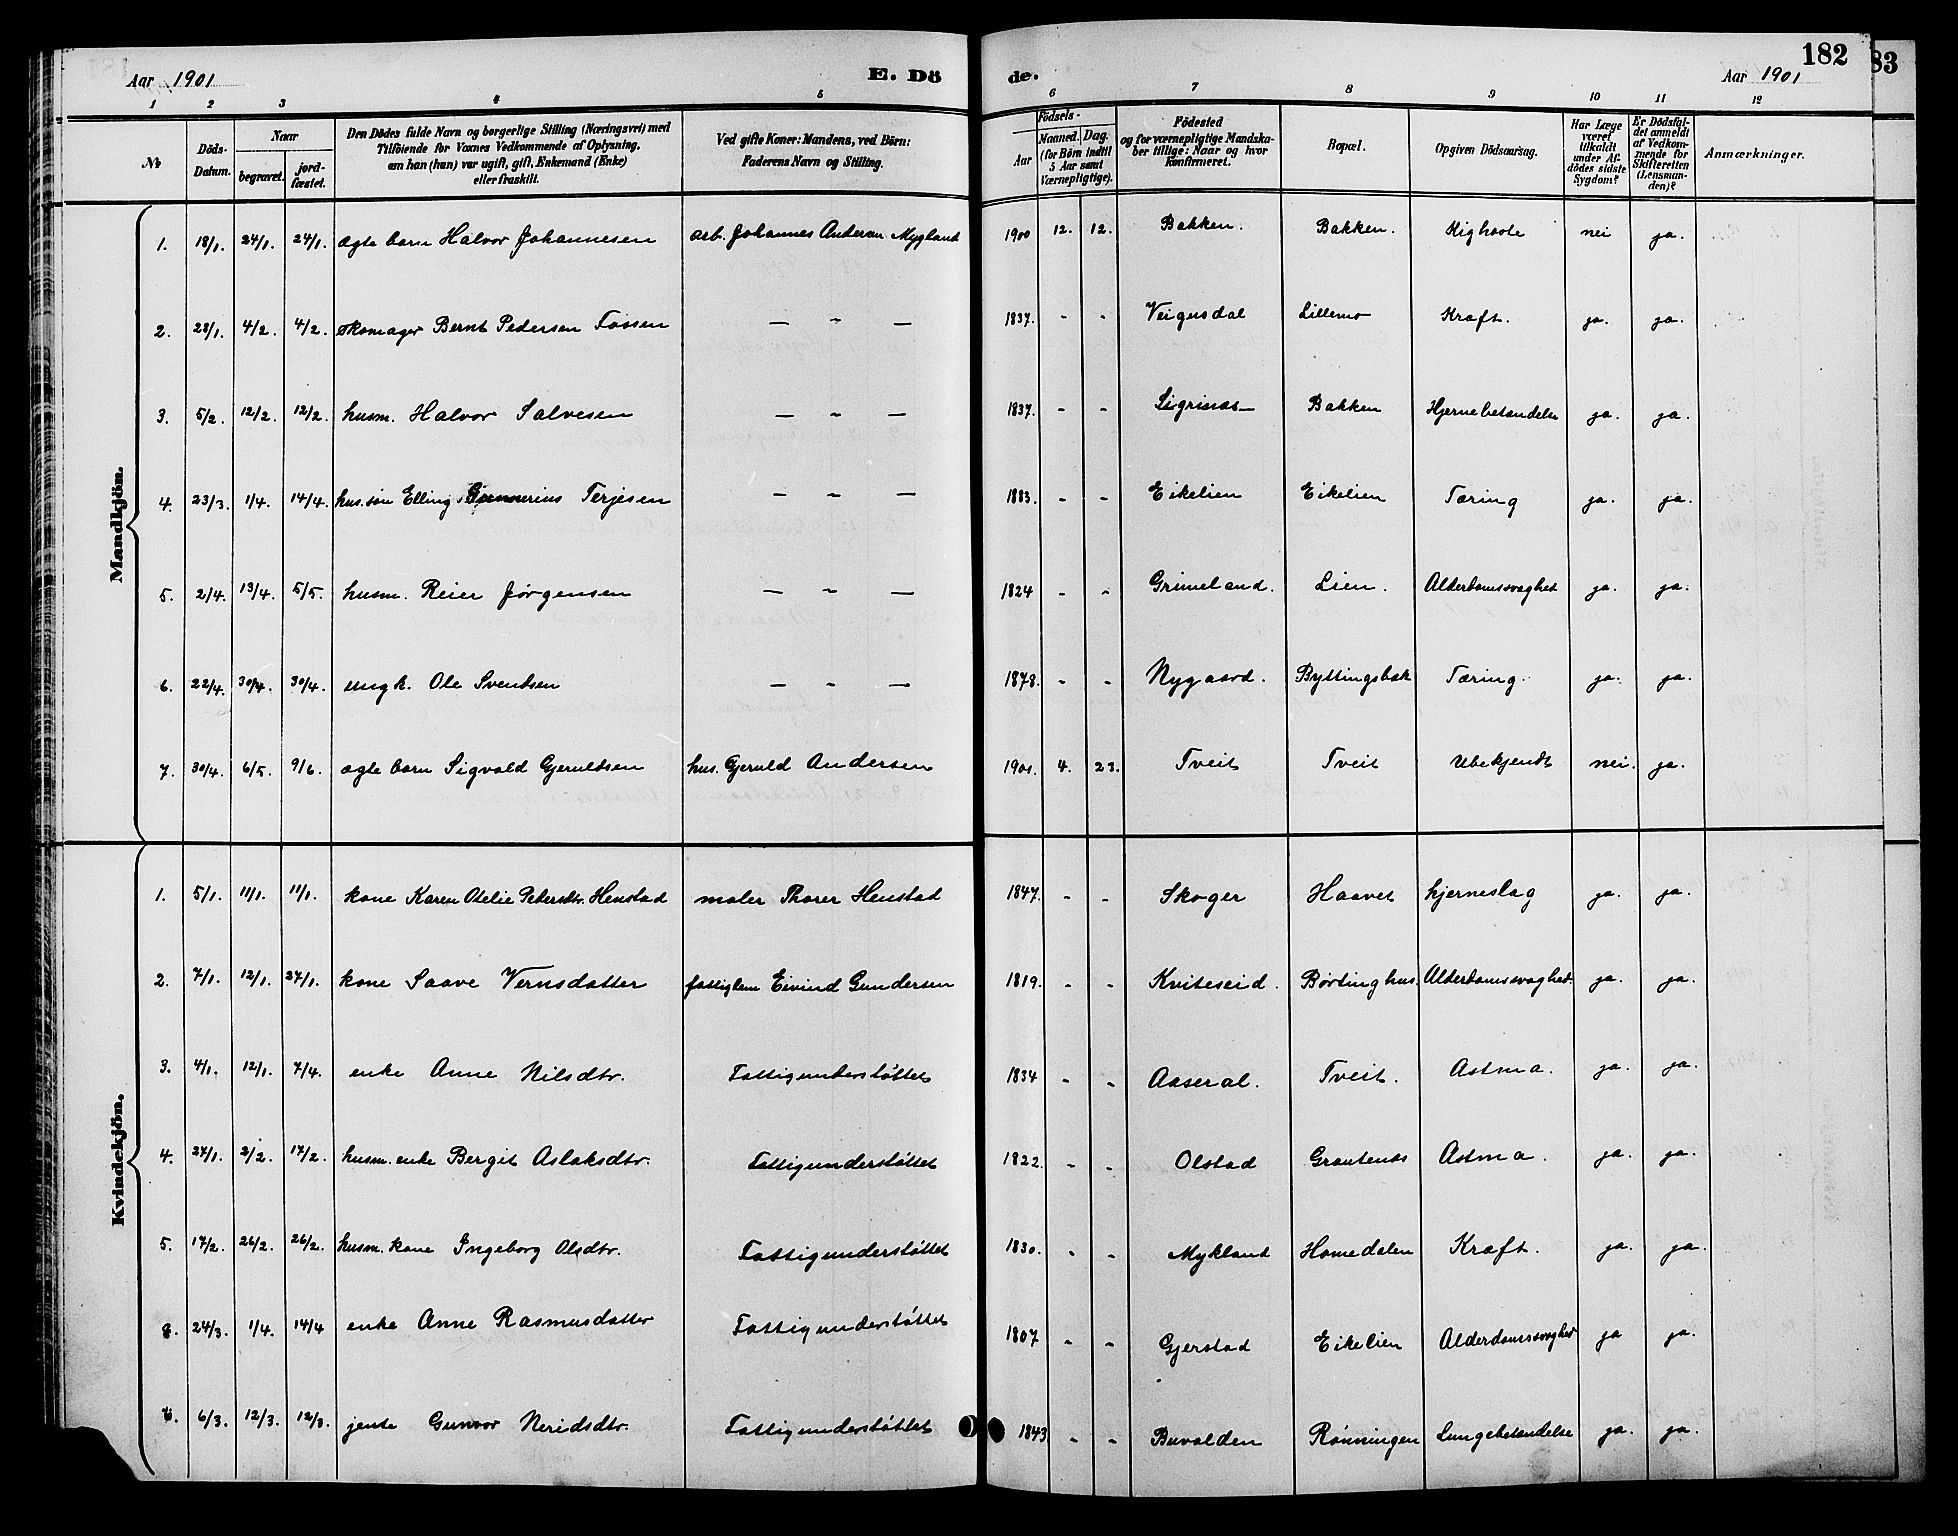 182
83
Aar 1901
E. Dö
de.
Aar 1901
1 2 3 4 5 6 7 8 9 10 11 12
No
Döds-Datum.
Naar
begravet.
jord-fæstet.
Den Dödes fulde Navn og borgerlige Stilling (Næringsvei) med
Tilföiende for Voxnes Vedkommende af Oplysning,
om han (hun) var ugift, gift, Enkemand (Enke)
eller fraskilt.
Ved gifte Koner: Mandens, ved Börn:
Faderens Navn og Stilling.
Födsels-
Aar
Maaned. Dag.
(for Börn indtil
5 Aar samt
Værnepligtige).
Födested
og for værnepligtige Mandska-
ber tillige: Naar og hvor
Konfirmeret.
Bopæl.
Opgiven Dödsaarsag.
Har Læge
været
tilkaldt
under Af-
dödes sidste
Sygdom?
Er Dödsfal-
det anmeldt
af Vedkom-
mende for
Skifteretten
(Lensman-
den)?
Anmærkninger.
Mandkjön.
1. 18/1. 24/1. 24/1. ægte barn Halvor Johannesen arb. Johannes Andersen Mygland 1900 12. 12. Bakken. Bakken. Kighoste nei ja.
2. 28/1. 4/2. 4/2. skomager Bernt Pedersen Fossen — " — 1837. - - Veigusdal Lillemo Kræft. ja. ja.
3. 5/2. 12/2. 12/2. husm. Halvor Salvesen — " — 1837. - - Bakken Hjernebetændelse ja. ja.
4. 23/3. 1/4. 14/4. hus.søn Elling Gunnerius Terjesen — " — 1883. - - Eikelien Eikelien Tæring ja. ja.
5. 2/4. 13/4. 5/5. husm. Reier Jørgensen — " — 1824 - - Grimeland. Lien. Alderdomssvaghet ja. ja.
6. 22/4. 30/4. 30/4. ungk. Ole Svendsen — " — 1878. - - Nygaard. Byttingsbæk Tæring. ja. ja.
7. 30/4. 6/5. 9/6. ægte barn Sigvald Gjeruldsen hus. Gjeruld Andersen 1901. 4. 23. Tveit Tveit Ubekjendt nei. ja.
Kvindekjön.
1. 5/1. 11/1. 11/1. kone Karen Otelie Pedersdtr. Henstad maler Thorer Henstad 1847. - - Skoger Haavet hjerneslag ja. ja.
2. 7/1. 12/1. 27/1. kone Saave Vernsdatter fattiglem Eivind Gundersen 1819. - - Kviteseid. Børtinghus. Alderdomssvaghed. ja. ja.
3. 4/1. 12/1. 7/4. enke Anne Nilsdtr. Fattigunderstøttet 1834 - - Aaseral. Tveit. Astma. ja. ja.
4. 27/1. 2/2. 17/2. husm. enke Bergit Aslaksdtr. Fattigunderstøttet 1822. - - Olstad Astma. ja. ja.
5. 17/2. 26/2. 26/2. husm. kone Ingeborg Olsdtr. Fattigunderstøttet 1830. - - Mykland Homedalen Kræft. ja. ja.
24/3. 1/4. 14/4 enke Anne Rasmusdatter Fattigunderstøttet 1807 - - Gjerstad Eikelien Alderdomssvaghed ja ja.
6/3. 12/3. 12/3. jente Gunvor Neridsdtr. Fattigunderstøttet 1843 - - Buvolden Rønningen Lungebetændelse ja. ja.